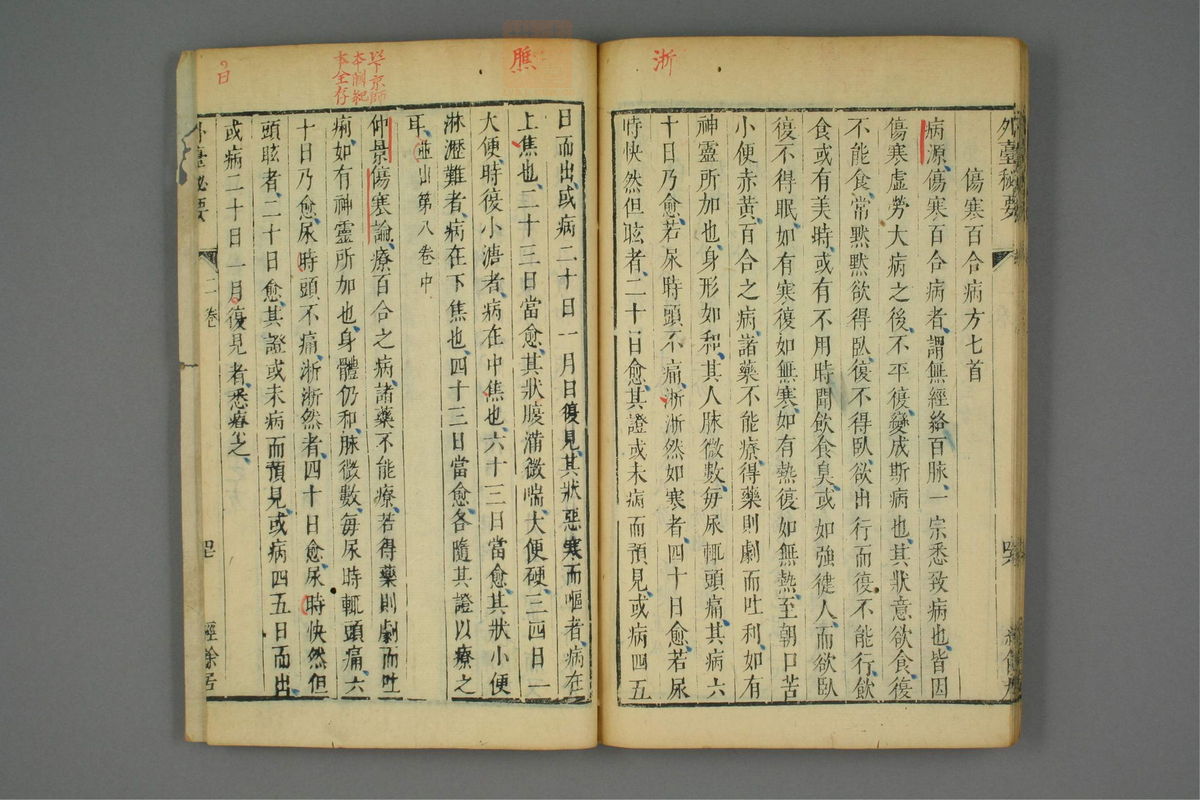 浙
外臺秘要
傷寒百合病方七首
病源傷寒百合病者謂無經絡百脉一宗悉致病也皆因
傷寒虛勞大病之後不平復變成斯病也其狀意欲食復
不能食常黙黙欲得臥復不得臥欲出行而復不能行飲
食或有美時或有不用時聞飲食臭或如強徤人而欲臥
復不得眠如有寒復如無寒如有熱復如無熱至朝口苦
小便赤黃百合之病諸藥不能療得藥則劇而吐利如有
神靈所加也身形如和其人脉微數每尿輒頭痛其病六
十日乃愈若尿時頭不痛淅淅然如寒者四十日愈若尿
時快然但眩者二十日愈其證或未病而預見或病四五
膲
日而出或病二十日一月日復見其狀惡寒而嘔者病在
上焦也二十三日當愈其狀腹滿微喘大便硬三四日一
大便時復小溏者病在中焦也六十三日當愈其狀小便
淋瀝難者病在下焦也四十三日當愈各隨其證以療之
耳並出第八卷中
仲景傷寒論療百合之病諸藥不能療若得藥則劇而吐
痢如有神靈所加也身體仍和脉微數每尿時輒頭痛六
十日乃愈尿時頭不痛淅淅然者四十日愈尿時快然但
頭眩者二十日愈其證或未病而預見或病四五日而出
或病二十日一月復見者悉療之
日
外臺秘要 二卷 經餘居